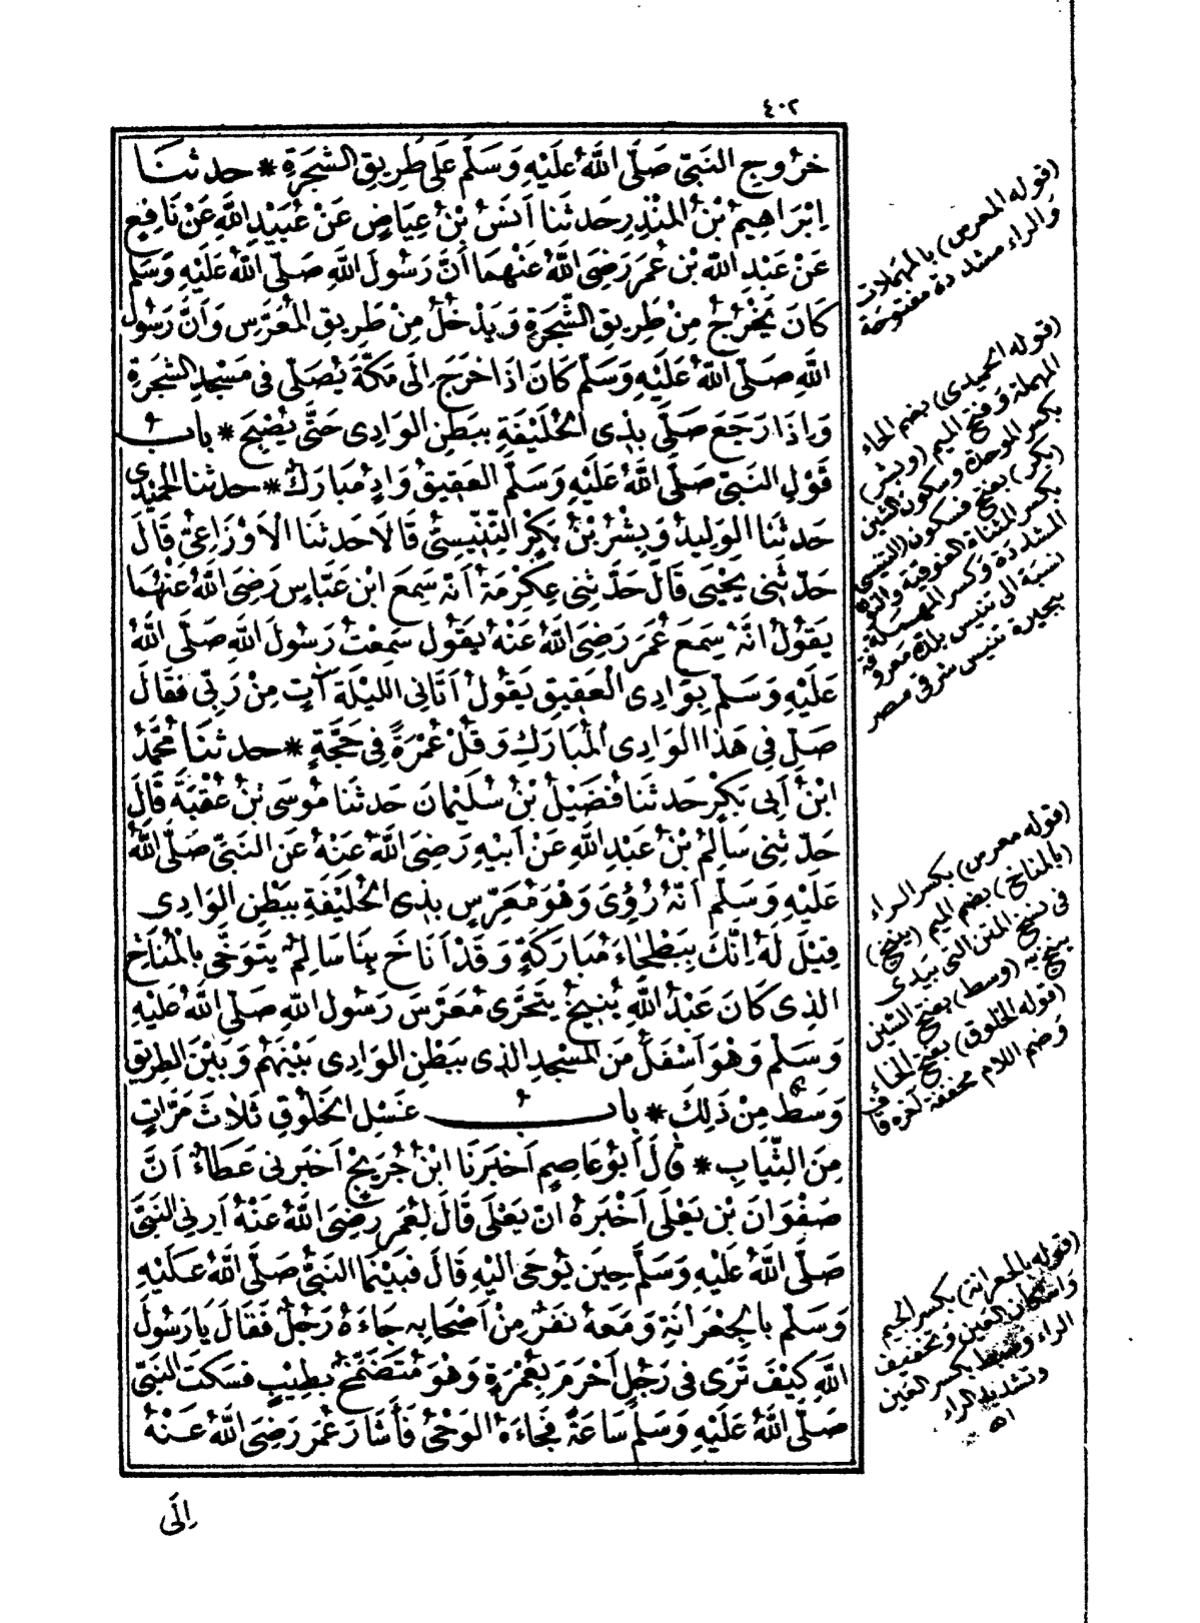 ٤٠٢
خُرُوجِ النَّبِيِّ صَلَّى اللَّهُ عَلَيْهِ وَسَلَّمَ عَلَى طَرِيقِ الشَّجَرَةِ * حدثنَا
اِبْرَاهِيمُ بْنُ المُنْذِرِ حَدثنا اَنَسُ بْنُ عِيَاضٍ عَنْ عُبَيْدِ اللَّهِ عَنْ نَافِعٍ
عَنْ عَبْدِ اللَّهِ بْنِ عُمَرَ رَضِيَ اللَّهُ عَنْهُمَا أَنَّ رَسُولَ اللَّهِ صَلَّى اللَّهُ عَلَيْهِ وَسَلَّمَ
كَانَ يَخْرُجُ مِنْ طَرِيقِ الشَّجَرَةِ وَيَدْخُلُ مِنْ طَرِيقِ المُعَرَّسِ وَاَنَّ رَسُولَ
اللَّهِ صَلَّى اللَّهُ عَلَيْهِ وَسَلَّمَ كَانَ اذَا خَرَجَ اِلَى مَكَّةَ يُصَلِّى فِى مَسْجِدِ الشَّجَرَةِ
وَاِذَا رَجَعَ صَلَّى بِذِى الحُلَيْفَةِ بِبَطْنِ الوَادِى حَتَّى يُصْبِحَ * بابُ
قَوْلِ النَّبِيِّ صَلَّى اللَّهُ عَلَيْهِ وَسَلَّمَ العَقِيقُ وَادٍ مُبَارَكٌ * حدثنا الحُمَيْدِى
حَدثنَا الوَلِيدُ وَبِشْرُ بْنُ بَكْرٍ التِّنِّيسِىُّ قَالاَ حَدثنَا الاَوْزَاعِىُّ قَالَ
حَدّثنِى يَحْيَى قَالَ حَدّثنِى عِكْرِمَةُ اَنّهُ سَمِعَ ابْنَ عَبَّاسٍ رَضِىَ اللَّهُ عَنْهُمَا
يَقُولُ اِنَّهُ سَمِعَ عُمَرَ رَضِىَ اللَّهُ عَنْهُ يَقُولُ سَمِعْتُ رَسُولَ اللَّهِ صَلَّى اللَّهُ
عَلَيْهِ وَسَلَّمَ بِوَادِى العَقِيقِ يَقُولُ اَتَانِى اللَّيْلَةَ آتٍ مِنْ رَبِّى فَقَالَ
صَلِّ فِى هَذَا الوَادِى المُبَارَكِ وَقُلْ عُمْرَةً فِى حَجَّةٍ * حدثنَا مُحَمَّدُ
ابْنُ اَبِى بَكْرٍ حَدثنَا فُضَيْلُ بْنُ سُلَيْمَانَ حَدثنَا مُوسَى بْنُ عُقْبَةَ قَالَ
حَدّثنِى سَالِمُ بْنُ عَبْدِ اللَّهِ عَنْ اَبِيْهِ رَضِىَ اللَّهُ عَنْهُ عَنِ النَّبِىِّ صَلَّى اللَّهُ
عَلَيْهِ وَسَلَّمَ اَنَّهُ رُؤِىَ وَهُوَ مُعَرِّسٌ بِذِى الحُلَيْفَةِ بِبَطْنِ الوَادِى
قِيْلَ لَهُ اِنَّكَ بِبَطْحَاءَ مُبَارَكَةٍ وَقَدْ اَنَاخَ بِنَا سَالِمٌ يَتَوَخَّى بِالمُنَاخِ
الذِى كَانَ عَبْدُ اللَّهِ يُنِيخُ يَتَحَرَّى مُعَرَّسَ رَسُولِ اللَّهِ صَلَّى اللَّهُ عَلَيْهِ
وَسَلَّمَ وَهُوَ اَسْفَلُ مِنَ المَسْجِدِ الذِى بِبَطْنِ الوَادِى بَيْنَهُمْ وَبَيْنَ الطَرِيقِ
وَسَطٌ مِنْ ذَلِكَ * بابُ غَسْلِ الخَلُوقِ ثَلاَثَ مَرَّاتٍ
مِنَ الثِّيَابِ * قَالَ اَبُو عَاصِمٍ اَخبَرَنَا ابْنُ جُرَيْجٍ اَخبَرنِى عَطَاءٌ اَنَّ
صَفْوَانَ بْنَ يَعْلَى اَخْبَرَهُ اَنّ يَعْلَى قَالَ لِعُمَرَ رَضِىَ اللَّهُ عَنْهُ اَرِنِى النَبِىَّ
صَلَّى اللَّهُ عَلَيْهِ وَسَلَّمَ حِينَ يُوحَى اليْهِ قَالَ فَبَيْنَمَا النَبِىُّ صَلَّى اللَّهُ عَلَيْهِ
وَسَلَّمَ بِالجِعْرَانَةِ وَمَعَهُ نَفَرٌ مِنْ اَصْحَابِهِ جَاءَهُ رَجُلٌ فَقَالَ يَارَسُولَ
اللَّهِ كَيْفَ تَرَى فِى رَجُلٍ اَحْرَمَ بِعُمْرَةٍ وَهُوَ مُتَضَمِّخٌ بِطِيْبٍ فَسَكَتَ النَّبِىُّ
صَلَّى اللَّهُ عَلَيْهِ وَسَلَّمَ سَاعَةً فَجَاءَهُ الوَحْىُ فَأَشَارَ عُمَرُ رَضِىَ اللَّهُ عَنْهُ
اِلَى
(قوله المعرس) بالمهملات
والراء مشددة مفتوحة
(قوله الحميدى) بضم الحاء
المهملة وفتح الميم (وبشر)
بكسر الموحدة وسكون الشين
(بكر) بفتح فسكون (التنيسى)
بكسر المثناة الفوقية والنون
المشددة وكسر المهملة
نسبة الى تنيس بلدة معروفة
ببحيرة تنيس شرقى مصر
(قوله معرس) بكسر الراء
(بالمناخ) بضم الميم (ينيخ)
فى نسخ المتن التى بيدى
ينيخ به (وسط) بفتح السين
(قوله الخلوق) بفتح الخاء
وضم اللام مخففة آخره قاف
(قوله بالجعرانة) بكسر الجيم
واسكان العين وتخفيف
الراء وضبط بكسر العين
وتشديد الراء
اه